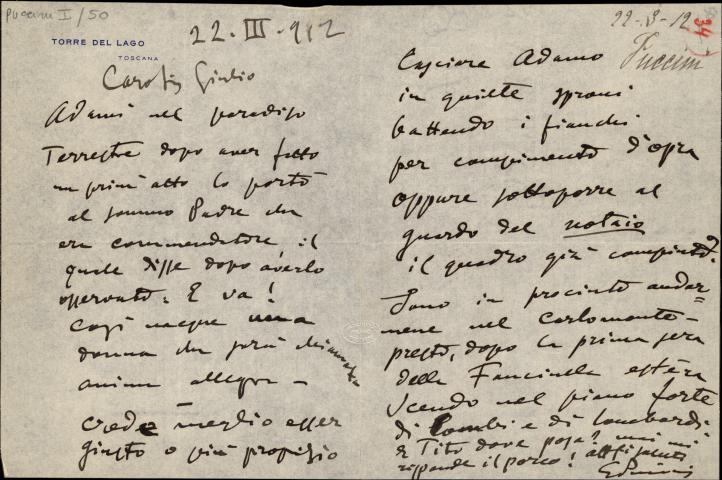 Puccini I/50
TORRE DEL LAGO
TOSCANA
22. III - 912
Caro Giulio
Adami nel paradiso
Terrestre dopo aver fatto
un prim' atto lo portò
al sommo Padre che
era commendatore, il
quale disse dopo averlo
osservato: E va!
Così nacque una
donna che sarà chiamata
anima allegra —
Credo meglio esser
giusto o più propizio
22-3-12
34
Puccini
lasciare Adamo
in quiete
battendo i fianchi
per compimento d'opra
oppure sottoporre al
guardo del notaio
il quadro già compiuto?
Sono in procinto andar=
mene nel Carlomonte-
presto, dopo la prima sera
della Fanciulla
nel piano forte
di e di Lombardi.
E Tito dove posa? mai mi
risponde il porco!